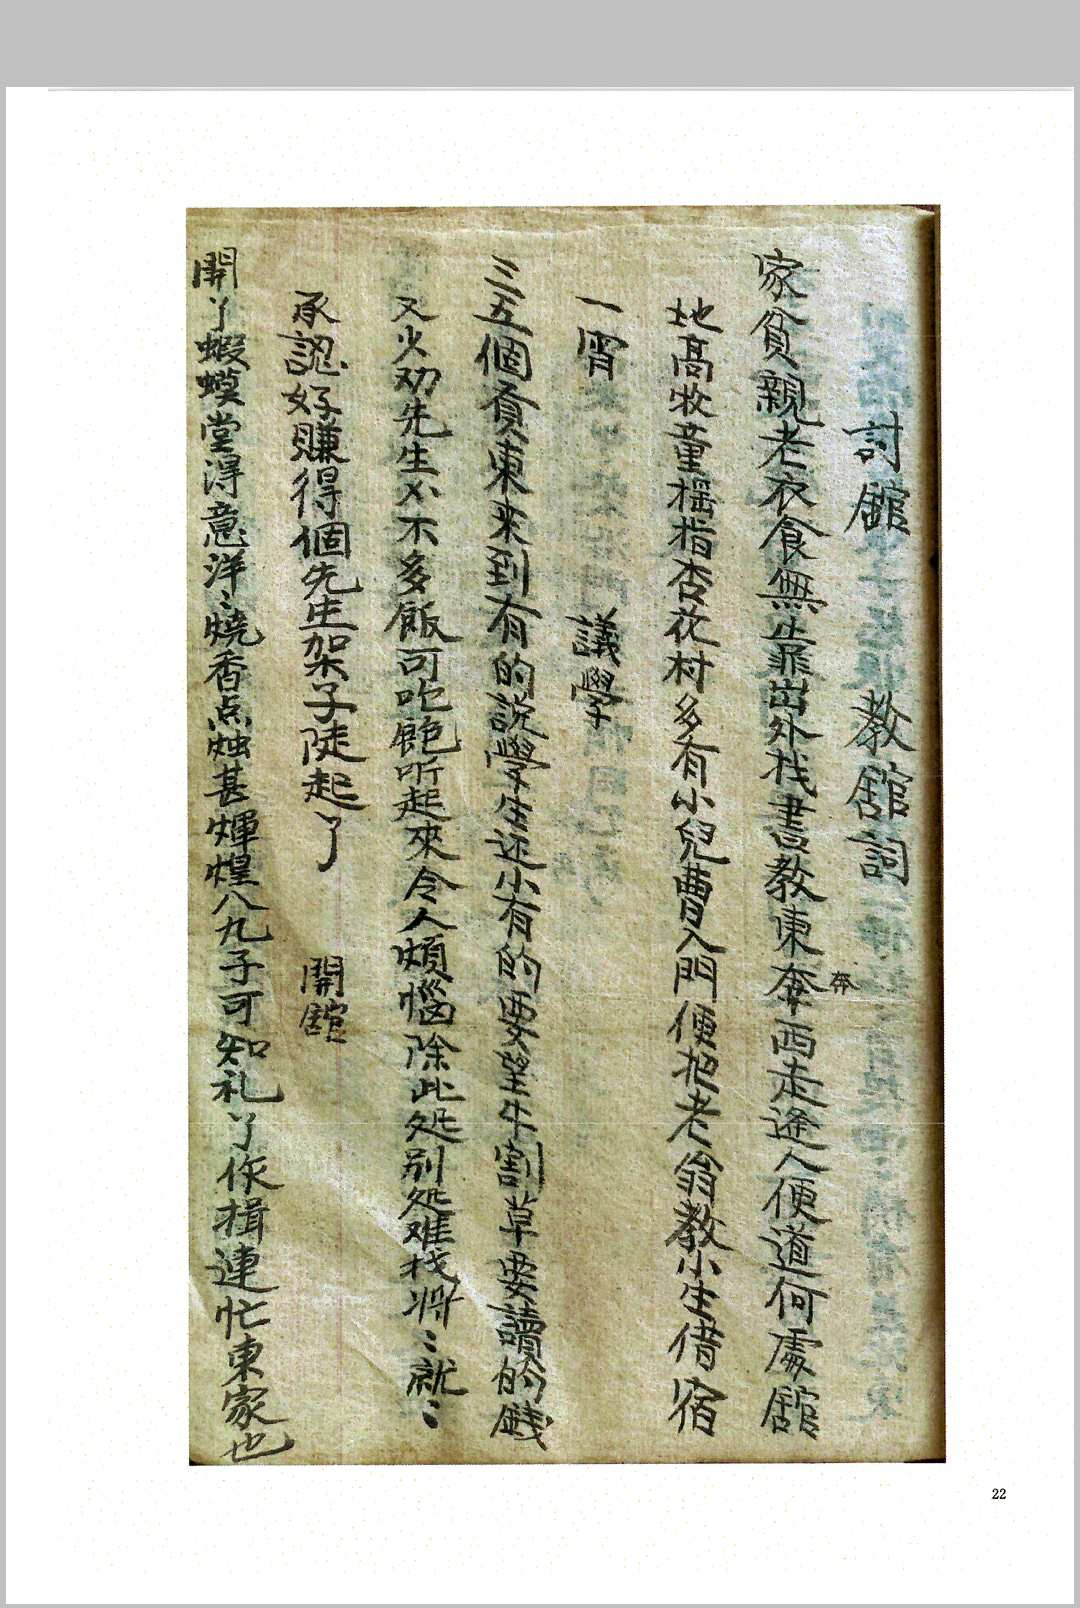 討舘　教舘詞
家貧親老衣食無生涯出外找書教東奔西走逢人便道何處舘
奔
地高牧童楿指杏花村多有小兒曹入門便把老翁教小生借宿
一宵　議學
三五個貢東来到有的説學生还小有的要望牛割草要讀的錢
又火劝先生不多飯可吃飽听起來令人煩惱除此处別处难找將:就:
承認好賺得個先生架子陡起了　開舘
開了蝦蟆堂得意洋:燒香点烛甚輝煌八九子可知礼了作揖連忙東家也
22